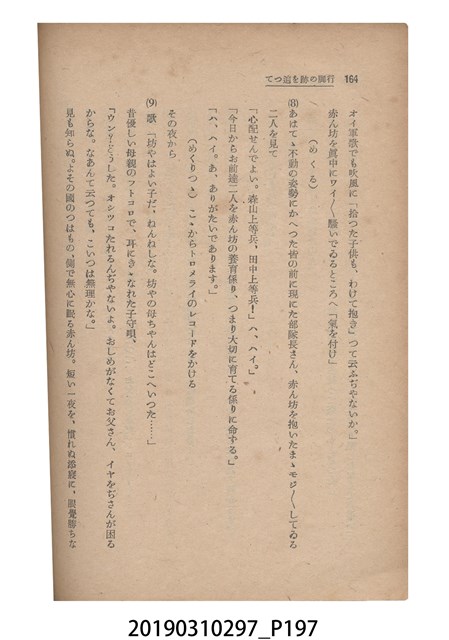 164 行脚の跡を追つて
オイ軍歌でも吹風に「拾つた子供も、わけて抱き」つて云ふぢやないか。」
赤ん坊を眞中にワイ〱騷いでゐるところへ「氣を付け」
（めくる）
(8) あはてゝ不動の姿勢にかへつた皆の前に現にた部隊長さん、赤ん坊を抱いたまゝモジ〱してゐる
二人を見て
「心配せんでよい。森山上等兵、田中上等兵！」ハ、ハイ。」
「今日からお前達二人を赤ん坊の養育係り、つまり大切に育てる係りに命ずる。」
「ハ、ハイ。あ、ありがたいであります。」
（めくりつゝ）こゝからトロメライのレコードをかける
その夜から
(9) 歌 「坊やはよい子だ、ねんねしな。坊やの母ちやんはどこへいつた……」
昔優しい母親のフトコロで、耳にきゝなれた子守唄、
「ウン？どうした。オシツコたれるんぢやないよ。おしめがなくてお父さん、イヤをぢさんが困る
からな。なあんて云つても、こいつは無理かな。」
見も知らぬ。よその國のつはもの、側で無心に眠る赤ん坊。短い一夜を、慣れぬ添寢に、眼覺勝ちな
20190310297_P197